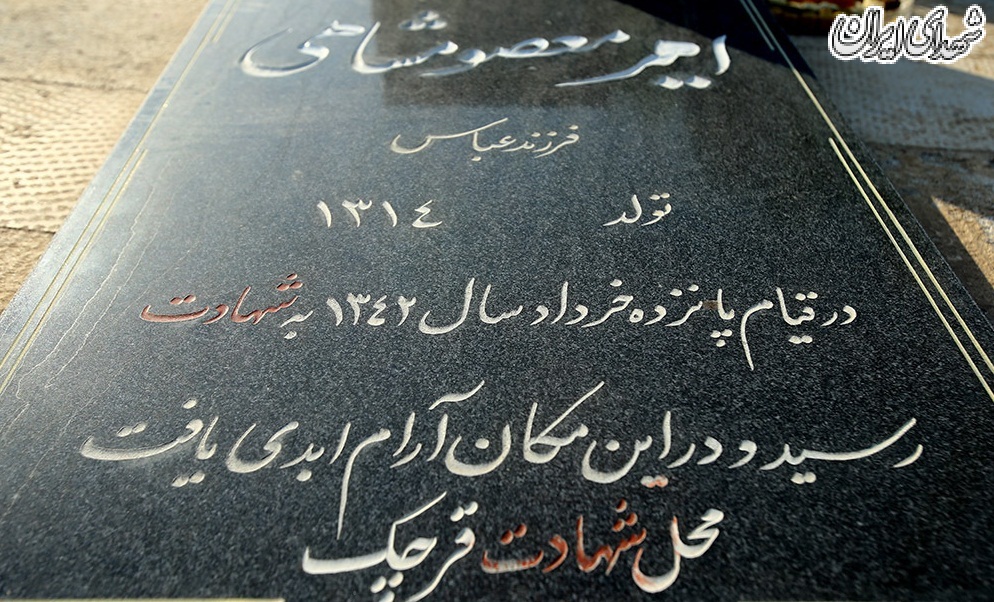 شهدای ایران
امیر معصومشاهی
فرزند عباس
تولد ۱۳۱٤
در قیام پانزده خرداد سال ۱۳٤۲ به شهادت
رسید و در این مکان آرام ابدی یافت
محل شهادت قرچک